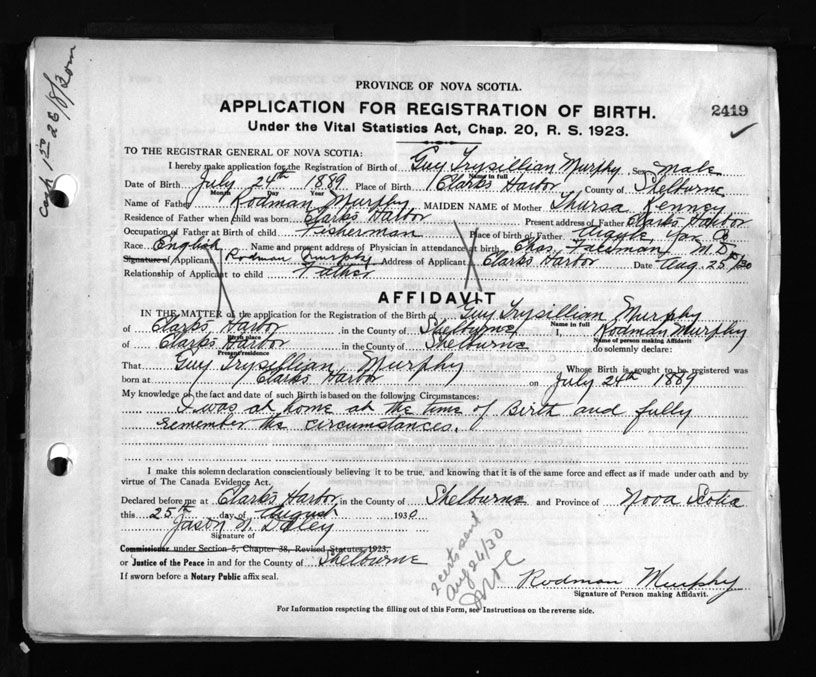 PROVINCE OF NOVA SCOTIA.
APPLICATION FOR REGISTRATION OF BIRTH.
2419
Under the Vital Statistics Act, Chap. 20, R. S. 1923.
TO THE REGISTRAR GENERAL OF NOVA SCOTIA:
I hereby make application for the Registration of Birth of Guy Trysillian Murphy Sex Male
Name in full
Date of Birth July 24th 1889 Place of Birth Clarks Harbor County of Shelburne
Month Day Year
Name of Father Rodman Murphy MAIDEN NAME of Mother Thursa Kenney
Residence of Father when child was born Clarks Harbor Present address of Father Clarks Harbor
Occupation of Father at Birth of child Fisherman Place of birth of Father Yar. Co
Race English Name and present address of Physician in attendance at birth Chas. M D.
Signature of Applicant Rodman Murphy Address of Applicant Clarks Harbor Date Aug 25th/30
Relationship of Applicant to child Father
AFFIDAVIT
IN THE MATTER of the application for the Registration of the Birth of Guy Trysillian Murphy
Name in full
of Clarks Harbor in the County of Shelburne I, Rodman Murphy
Birth place Name of person making Affidavit
of Clarks Harbor in the County of Shelburne do solemnly declare:
Present residence
That Guy Trysillian Murphy Whose Birth is sought to be registered was
born at Clarks Harbor on July 24th 1889
My knowledge of the fact and date of such Birth is based on the following Circumstances:
I was at home at the time of Birth and fully
remember the circumstances.
I make this solemn declaration conscientiously believing it to be true, and knowing that it is of the same force and effect as if made under oath and by
virtue of The Canada Evidence Act.
Declared before me at Clarks Harbor in the County of Shelburne and Province of Nova Scotia
this 25th day of August 1930
Jason N. Daley
Signature of
Commissioner under Section 5, Chapter 38, Revised Statutes, 1923,
or Justice of the Peace in and for the County of Shelburne
If sworn before a Notary Public affix seal.
2 certs sent
Aug 24/30
Rodman Murphy
Signature of Person making Affidavit.
For Information respecting the filling out of this Form, see Instructions on the reverse side.